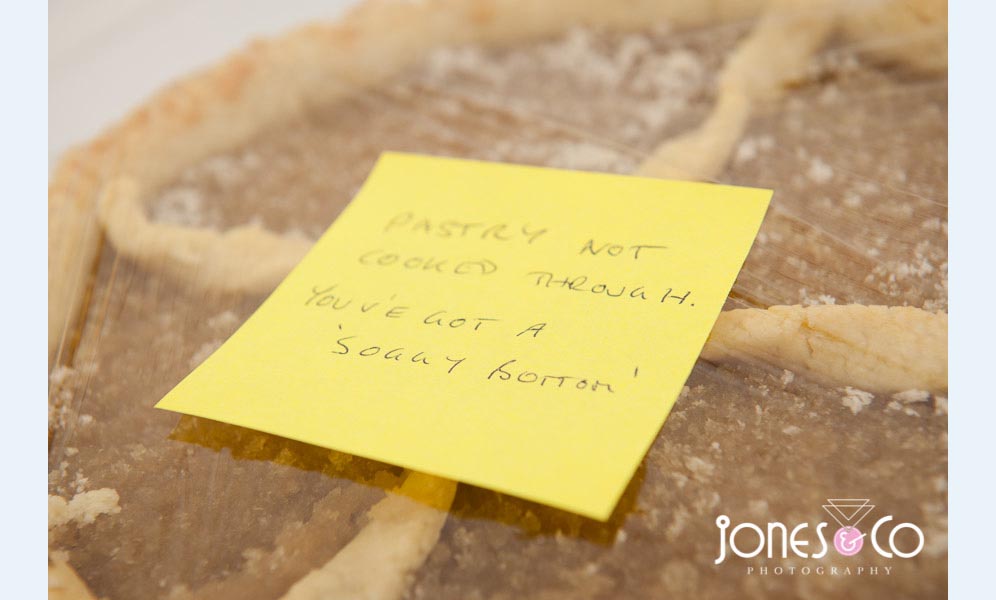 PASTRY NOT
COOKED THROUGH.
YOU'VE GOT A
'SOGGY BOTTOM'
JONES & CO
PHOTOGRAPHY